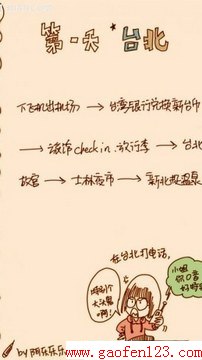 第一天 台北
下飞机出机场 → 台湾银行兑换新台币
→ 旅馆check in.放行李 → 台北
故宫 → 士林夜市 → 新北投温泉
在台北打电话,
小姐
你口音
好
by 阿乐乐乐
www.gaofen123.com